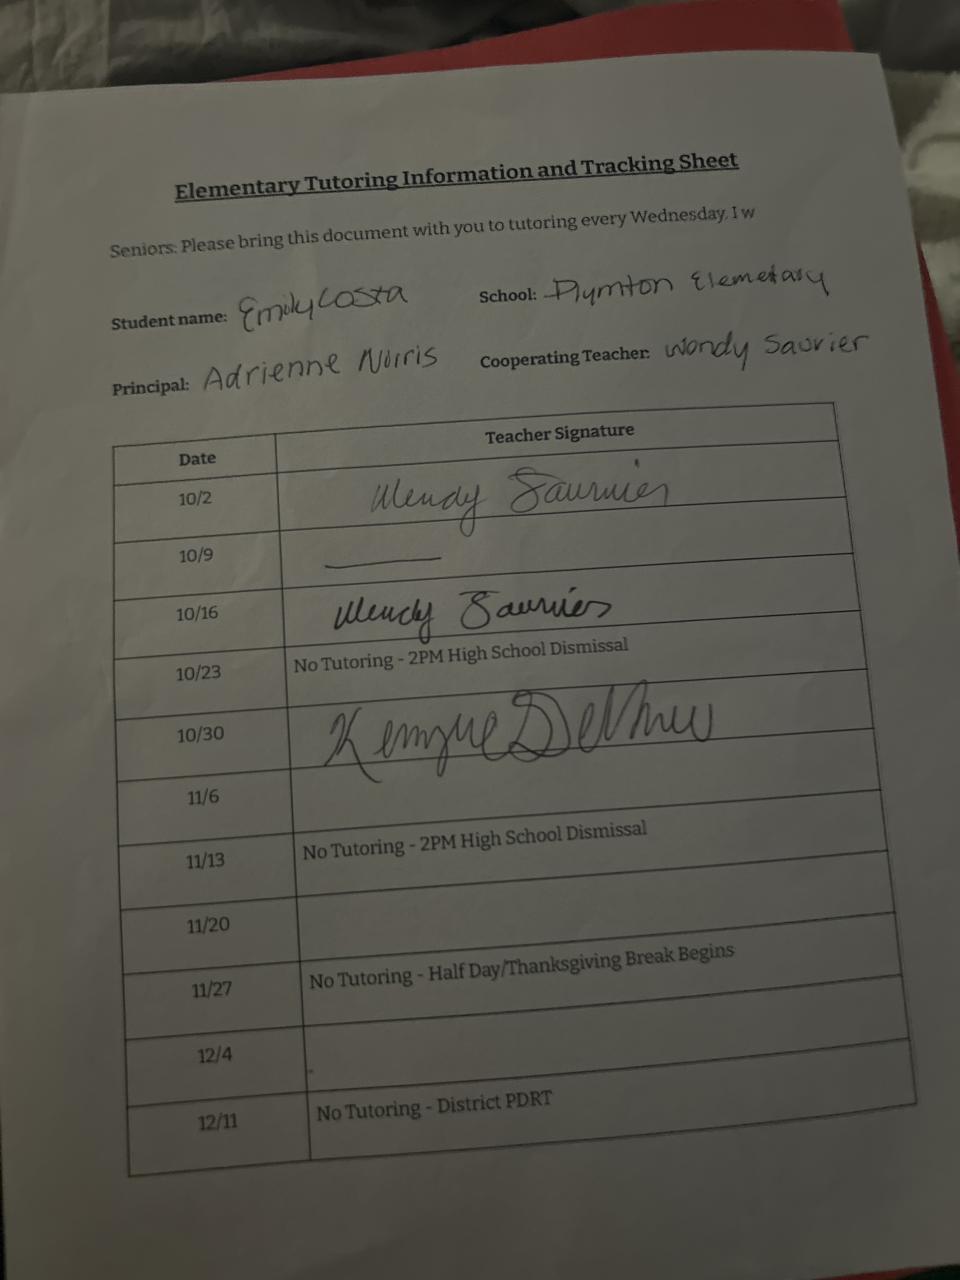 Elementary Tutoring Information and Tracking Sheet
Seniors: Please bring this document with you to tutoring every Wednesday. I w
Student name: Emily Costa School: Plymton Elemetary
Principal: Adrienne Norris Cooperating Teacher: Wendy Saurier
Date Teacher Signature
10/2 Wendy Saurnier
10/9
10/16 Wendy Saurnier
10/23 No Tutoring - 2PM High School Dismissal
10/30
11/6
11/13 No Tutoring - 2PM High School Dismissal
11/20
11/27 No Tutoring - Half Day/Thanksgiving Break Begins
12/4
12/11 No Tutoring - District PDRT